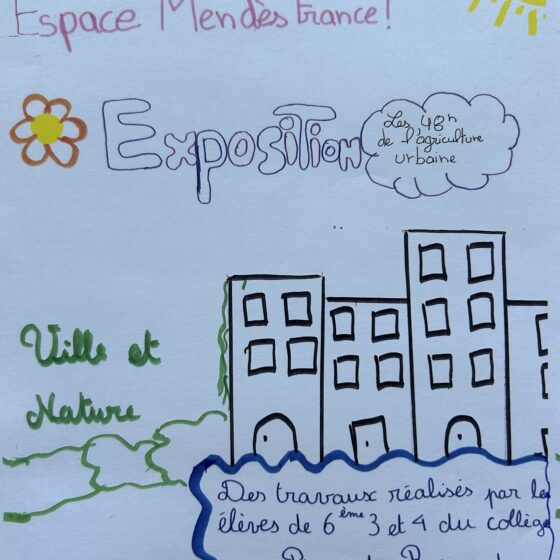 Espace Mendès France!
Exposition
Les 48h
de l'agriculture
urbaine
Ville et
Nature
Des travaux réalisés par les
élèves de 6ème 3 et 4 du collège